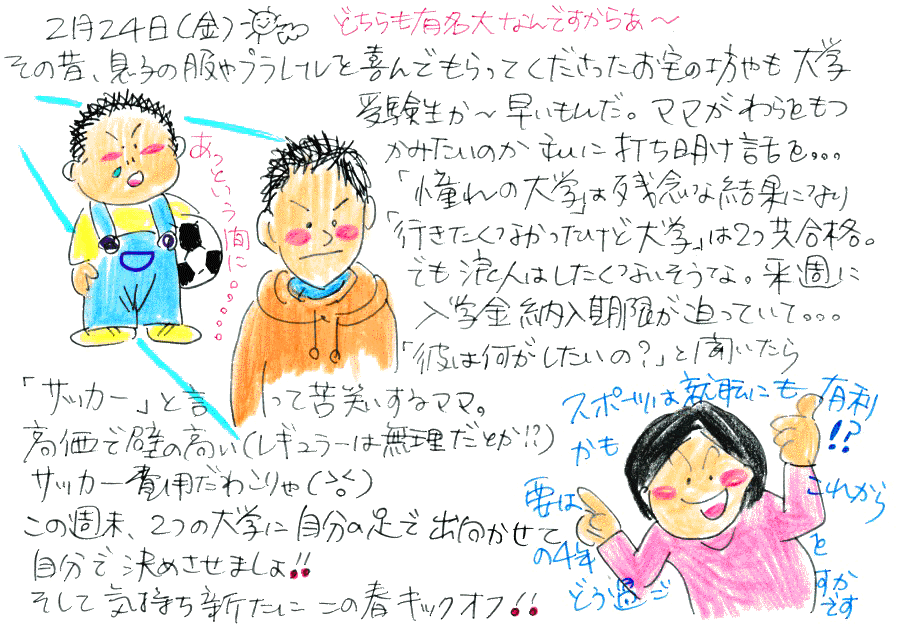 2月24日(金)
どちらも有名大なんですからあ～
その昔、息子の服やプラレールと喜んでもらってくださったお宅の坊やも大学
受験生か～早いもんだ。ママがわらをもつ
かみたいのか むいに打ち明け話を。。。
「憧れの大学」は残念な結果になり
「行きたくなかったけど大学」は2つ共合格。
でも浪人はしたくないそうな。来週に
入学金納入期限が迫っていて。。。
「彼は何がしたいの?」と聞いたら
「サッカー」と言って苦笑いするママ。
高価で壁の高い(レギュラーは無理だとか!?)
サッカー費用だわこりゃ(>。<)
この週末、2つの大学に自分の足で出向かせて
自分で決めさせましょ!!
そして気持ち新たに この春キックオフ!!
あっという間に。。。。。
スポーツは就職にも有利
かも
!?
要は
これから
の4年
を
どう過ごすか
です